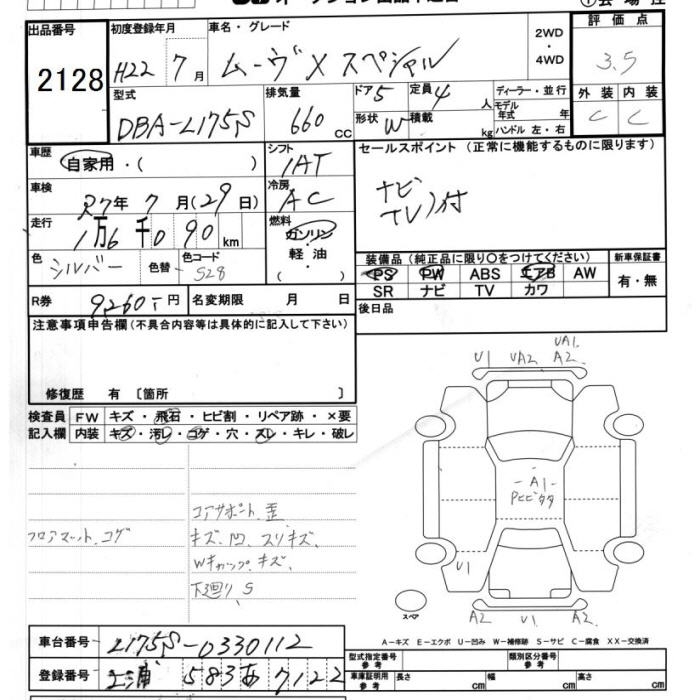 出品番号
2128
初度登録年月
H22 7月
車名・グレード
ムーヴ X スペシャル
2WD
・
4WD
評価点
3.5
外装 内装
C C
型式
DBA-L175S
排気量
660 cc
ドア 5
形状 W
定員 4 人
積載 kg
ディーラー・並行
モデル年式 年
ハンドル 左・右
車歴
自家用・( )
シフト
IAT
セールスポイント (正常に機能するものに限ります)
ナビ
TV 付
車検
R7年 7月(29日)
冷房
AC
走行
1万6千090km
燃料
ガソリン
・
軽油
( )
色
シルバー
色替
色コード
S28
装備品 (純正品に限り○をつけてください)
PS PW ABS エアB AW
SR ナビ TV カワ
新車保証書
有・無
R券 9,260-円
名変期限 月 日
後日品
注意事項申告欄 (不具合内容等は具体的に記入して下さい)
修復歴 有 〔箇所 〕
検査員
記入欄
FW キズ・飛石・ヒビ割・リペア跡・×要
内装 キズ・汚レ・コゲ・穴・スレ・キレ・破レ
フロアマット、コゲ
コアサポート歪
キズ、凹、スリキズ、
Wキャップキズ、
下廻りS
U1 UA2 UA1
A2
-A1-
U1
スペア
A2 U1 A2
A-キズ E-エクボ U-凹み W-補修跡 S-サビ C-腐食 XX-交換済
車台番号 L175S-0330112
登録番号 土浦 583 あ 7122
型式指定番号
参考
類別区分番号
参考
車庫証明用
参考
長さ cm 幅 cm 高さ cm